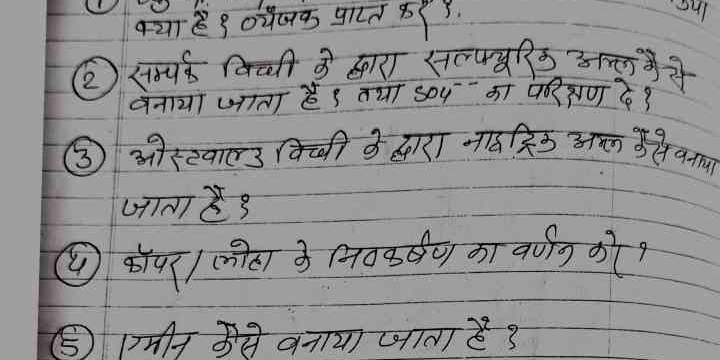 क्या है ? व्यंजक प्राप्त करें ?
② सम्पर्क विधी के द्वारा सल्फ्यूरिक अम्ल कैसे
बनाया जाता है ? तथा SO4-- का परिक्षण दे ?
③ ओस्टवाल्ड विधी के द्वारा नाइट्रिक अम्ल कैसे बनाया
जाता है ?
④ कॉपर / लोहा के निष्कर्षण का वर्णन करे ?
⑤ एमीन कैसे बनाया जाता है ?